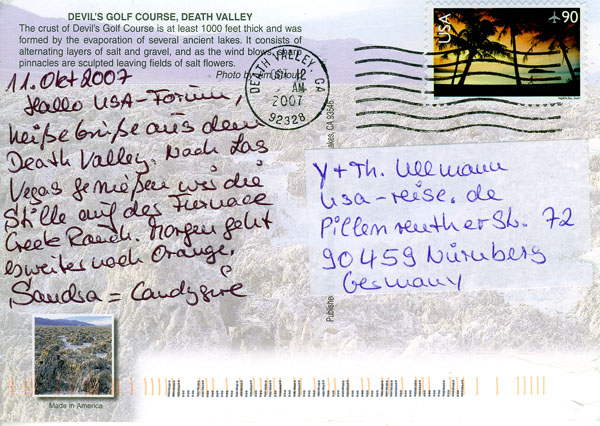 DEVIL'S GOLF COURSE, DEATH VALLEY
The crust of Devil's Golf Course is at least 1000 feet thick and was
formed by the evaporation of several ancient lakes. It consists of
alternating layers of salt and gravel, and as the wind blows, sharp
pinnacles are sculpted leaving fields of salt flowers.
Photo by
USA
90
DEATH VALLEY, CA
12
AM
2007
92328
11. Okt 2007
Hallo USA-Forum,
heiße Grüße aus dem
Death Valley. Nach Las
Vegas genießen wir die
Stille auf der Furnace
Creek Ranch. Morgen geht
es weiter nach Orange.
Sandra = Candygirl
Y + Th. Ullmann
usa-reise.de
Pillenreutherstr. 72
90459 Nürnberg
Germany
Publishe
akes, CA 93546
Made in America